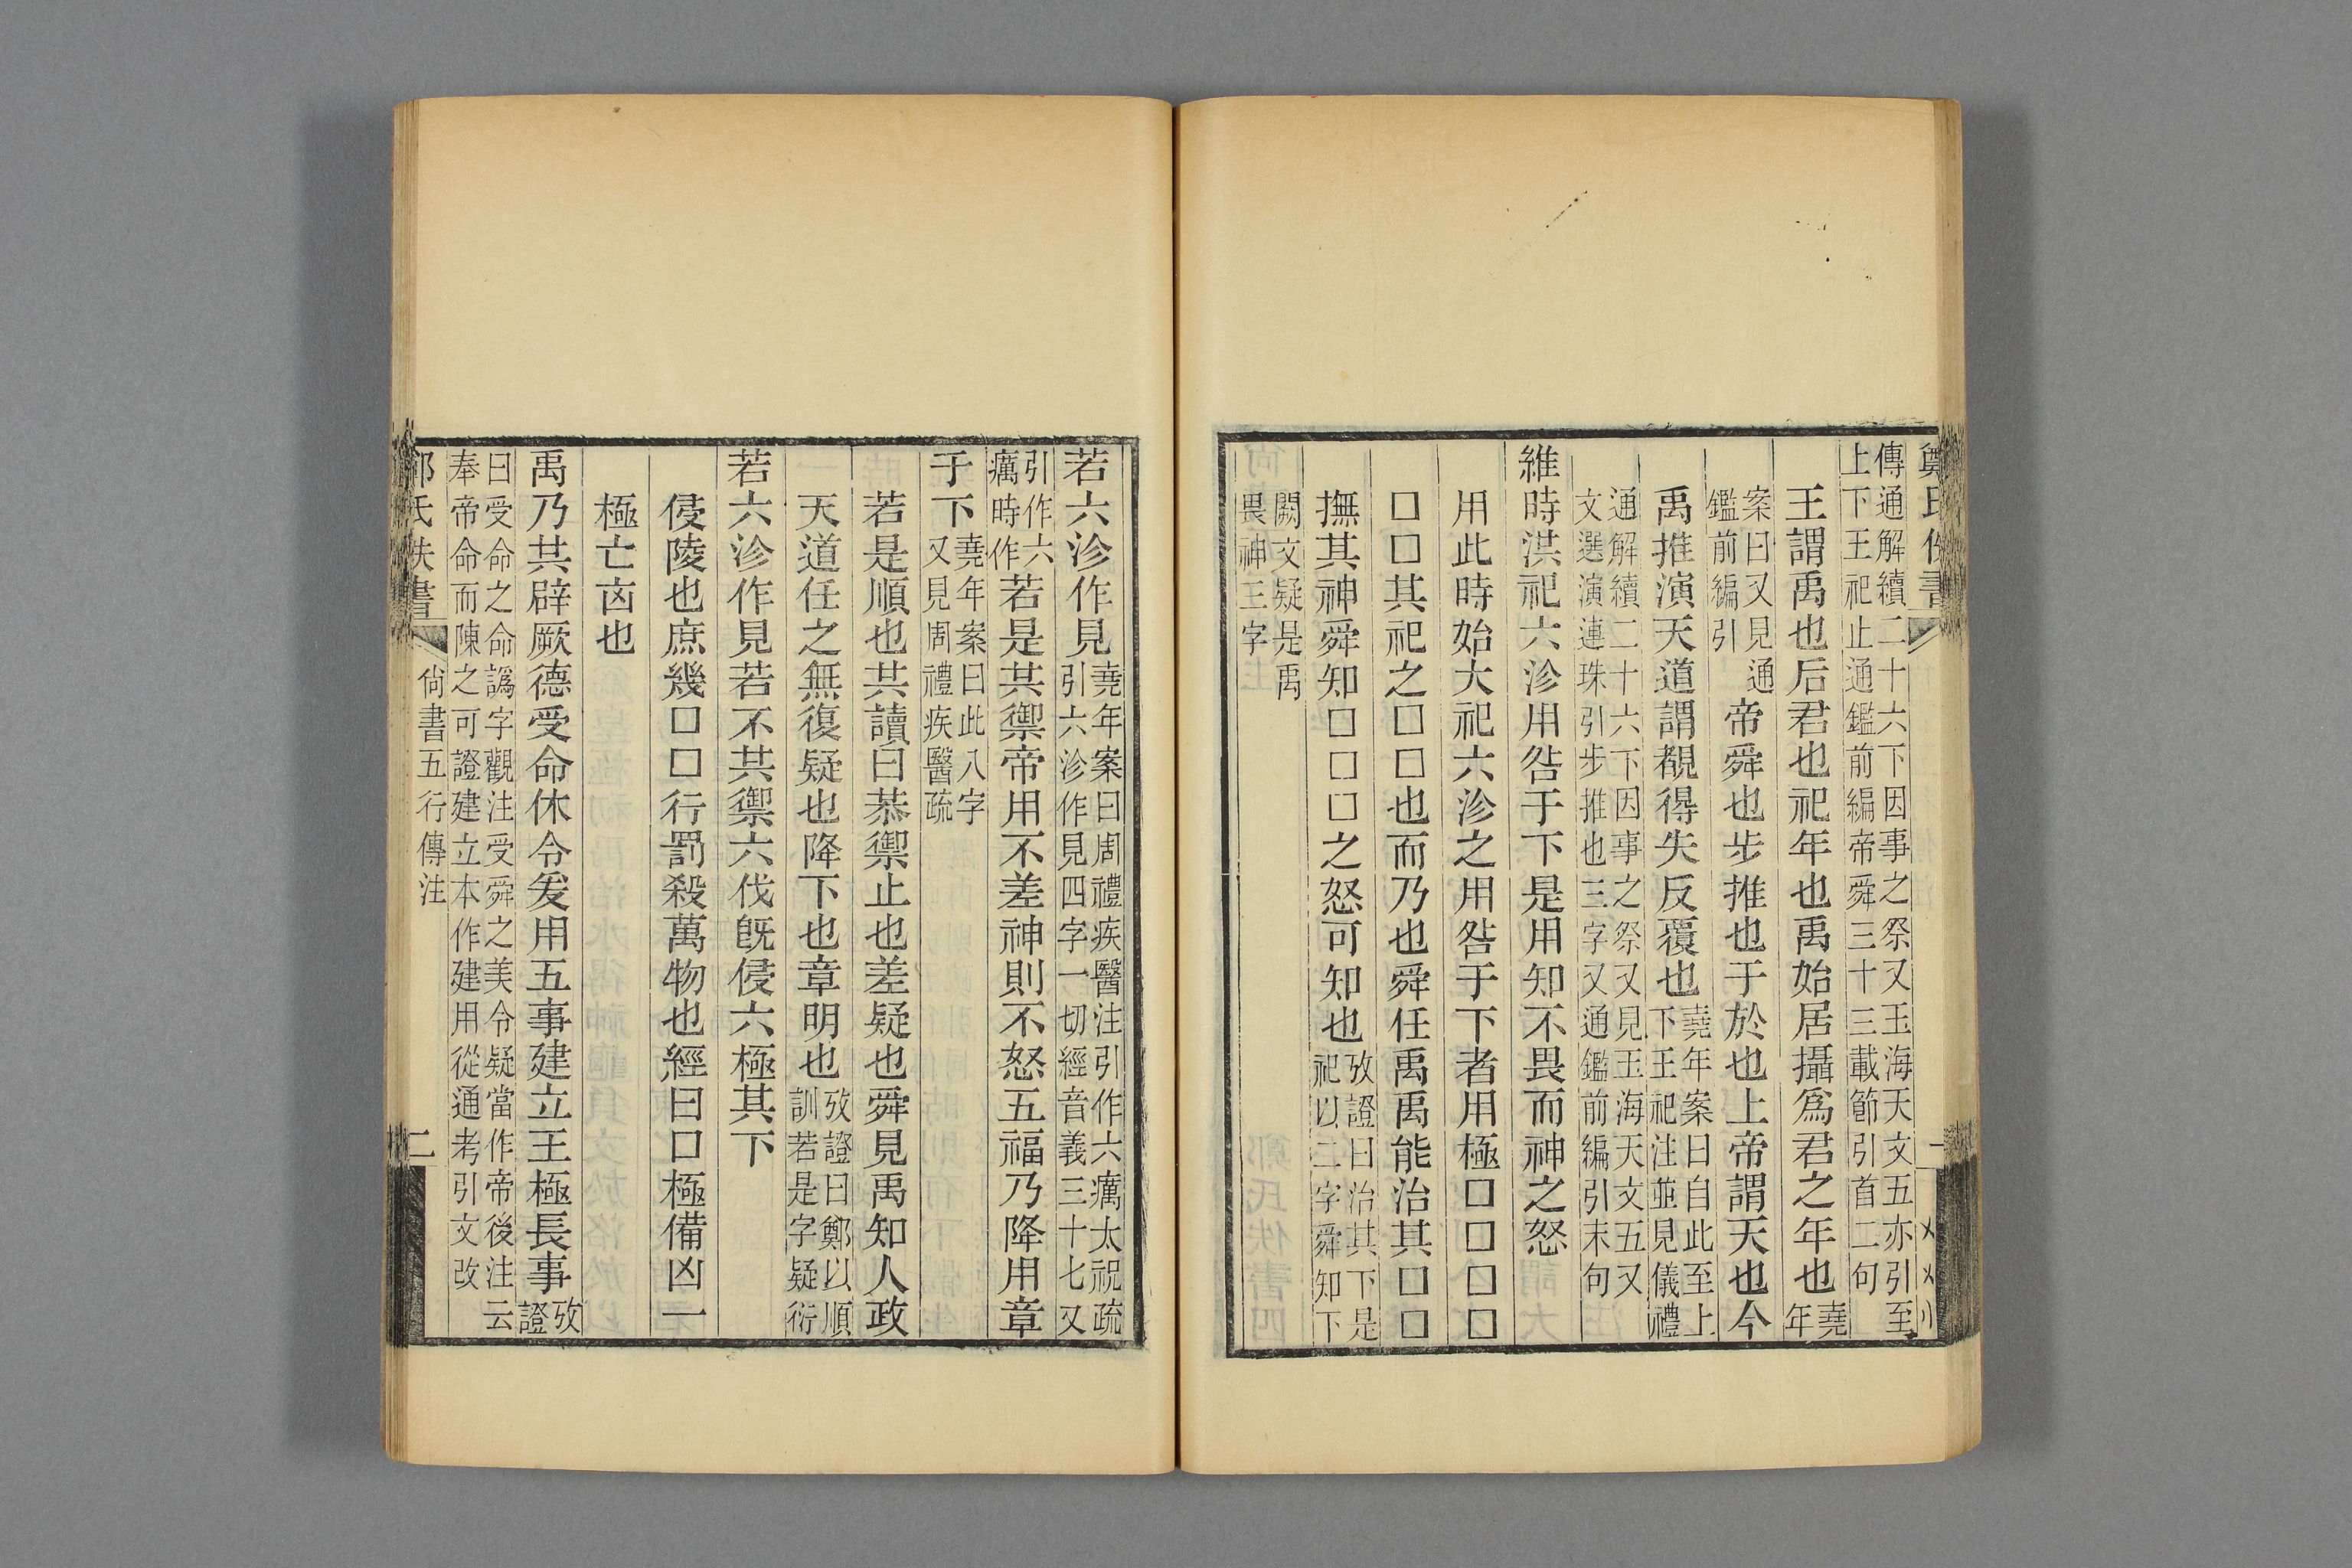 鄭氏佚書
傳通解續二十六下因事之祭又玉海天文五亦引至
上下王祀止通鑑前編帝舜三十三載節引首二句
王謂禹也后君也祀年也禹始居攝爲君之年也堯年
案曰又見通鑑前編引帝舜也步推也于於也上帝謂天也今
禹推演天道謂覩得失反覆也堯年案曰自此至上下王祀注並見儀禮
通解續二十六下因事之祭又見玉海天文五又
文選演連珠引步推也三字又通鑑前編引末句
維時洪祀六沴用咎于下是用知不畏而神之怒
用此時始大祀六沴之用咎于下者用極□□□□
□□其祀之□□也而乃也舜任禹禹能治其□□
撫其神舜知□□□之怒可知也攷證曰治其下是祀以二字舜知下
闕文疑是禹
畏神三字
若六沴作見堯年案曰周禮疾醫注引作六癘太祝疏引六沴作見四字一切經音義三十七又
引作六癘時作若是共禦帝用不差神則不怒五福乃降用章
于下堯年案曰此八字又見周禮疾醫疏
若是順也共讀曰恭禦止也差疑也舜見禹知人政
天道任之無復疑也降下也章明也攷證曰鄭以順訓若是字疑衍
若六沴作見若不共禦六伐旣侵六極其下
侵陵也庶幾□□行罰殺萬物也經曰□極備凶一
極亡㐫也
禹乃共辟厥德受命休令爰用五事建立王極長事攷證
曰受命之命譌字觀注受舜之美令疑當作帝後注云
奉帝命而陳之可證建立本作建用從通考引文改
鄭氏佚書 尙書五行傳注 二